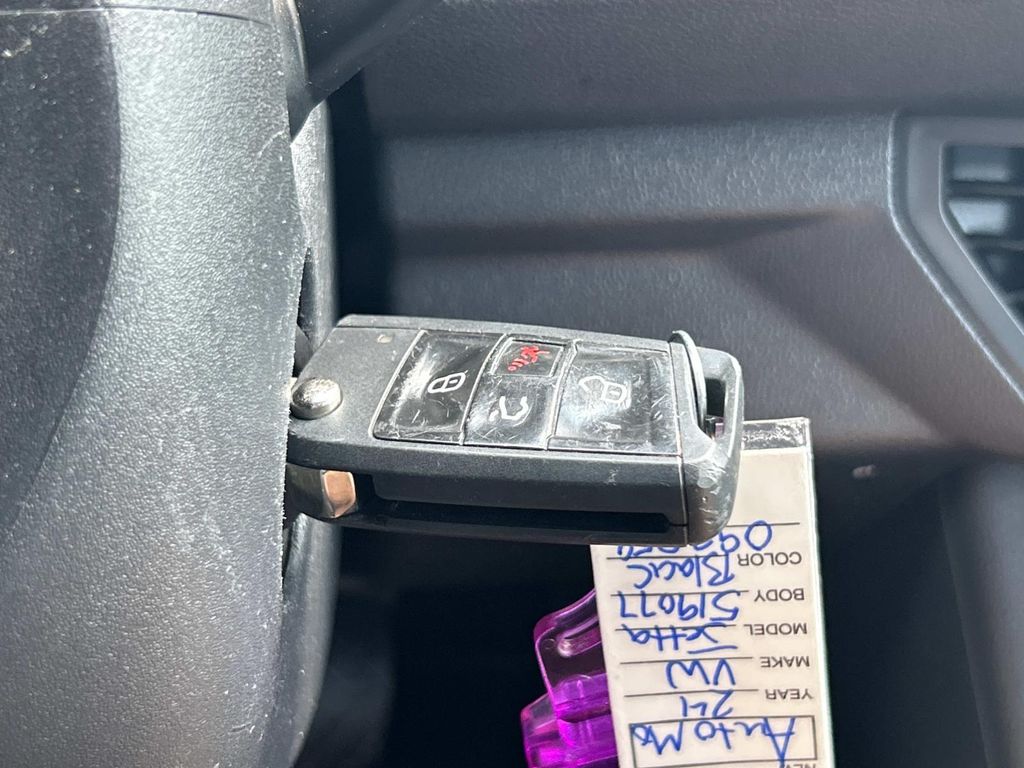 Auto Mo
YEAR 24
MAKE VW
MODEL Jetta
BODY 519077
COLOR Black